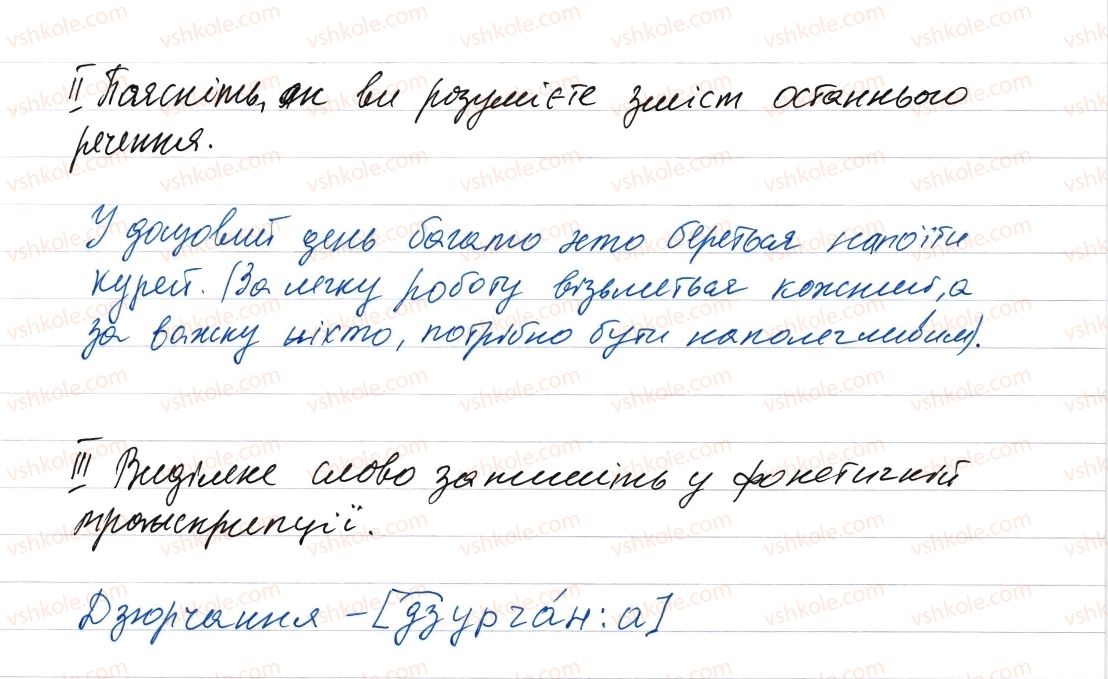 ІІ Поясніть, як ви розумієте зміст останнього
речення.
У дощовий день багато хто береться напоїти
курей. (За легку роботу візьметься кожний, а
за важку ніхто, потрібно бути наполегливим).
ІІІ Виділене слово запишіть у фонетичній
транскрипції.
Дзюрчання – [дзурча́н:а]